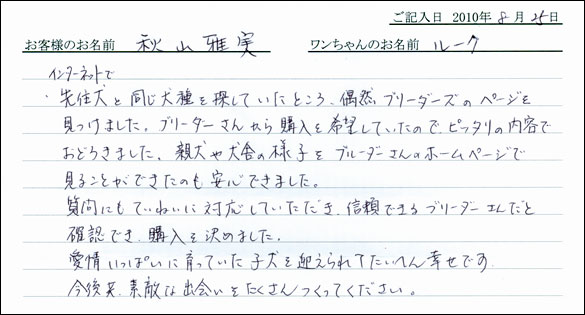 ご記入日 2010年 8 月 25 日
お客様のお名前 秋山雅実 ワンちゃんのお名前 ルーク
インターネットで
・先住犬と同じ犬種を探していたところ、偶然、ブリーダーズのページを
見つけました。ブリーダーさんから購入を希望していたので、ピッタリの内容で
おどろきました。親犬や犬舎の様子をブルーダーさんのホームページで
見ることができたのも安心できました。
質問にもていねいに対応していただき、信頼できるブリーダーさんだと
確認でき、購入を決めました。
愛情いっぱいに育っていた子犬を迎えられてたいへん幸せです。
今後共、素敵な出会いをたくさんつくってください。